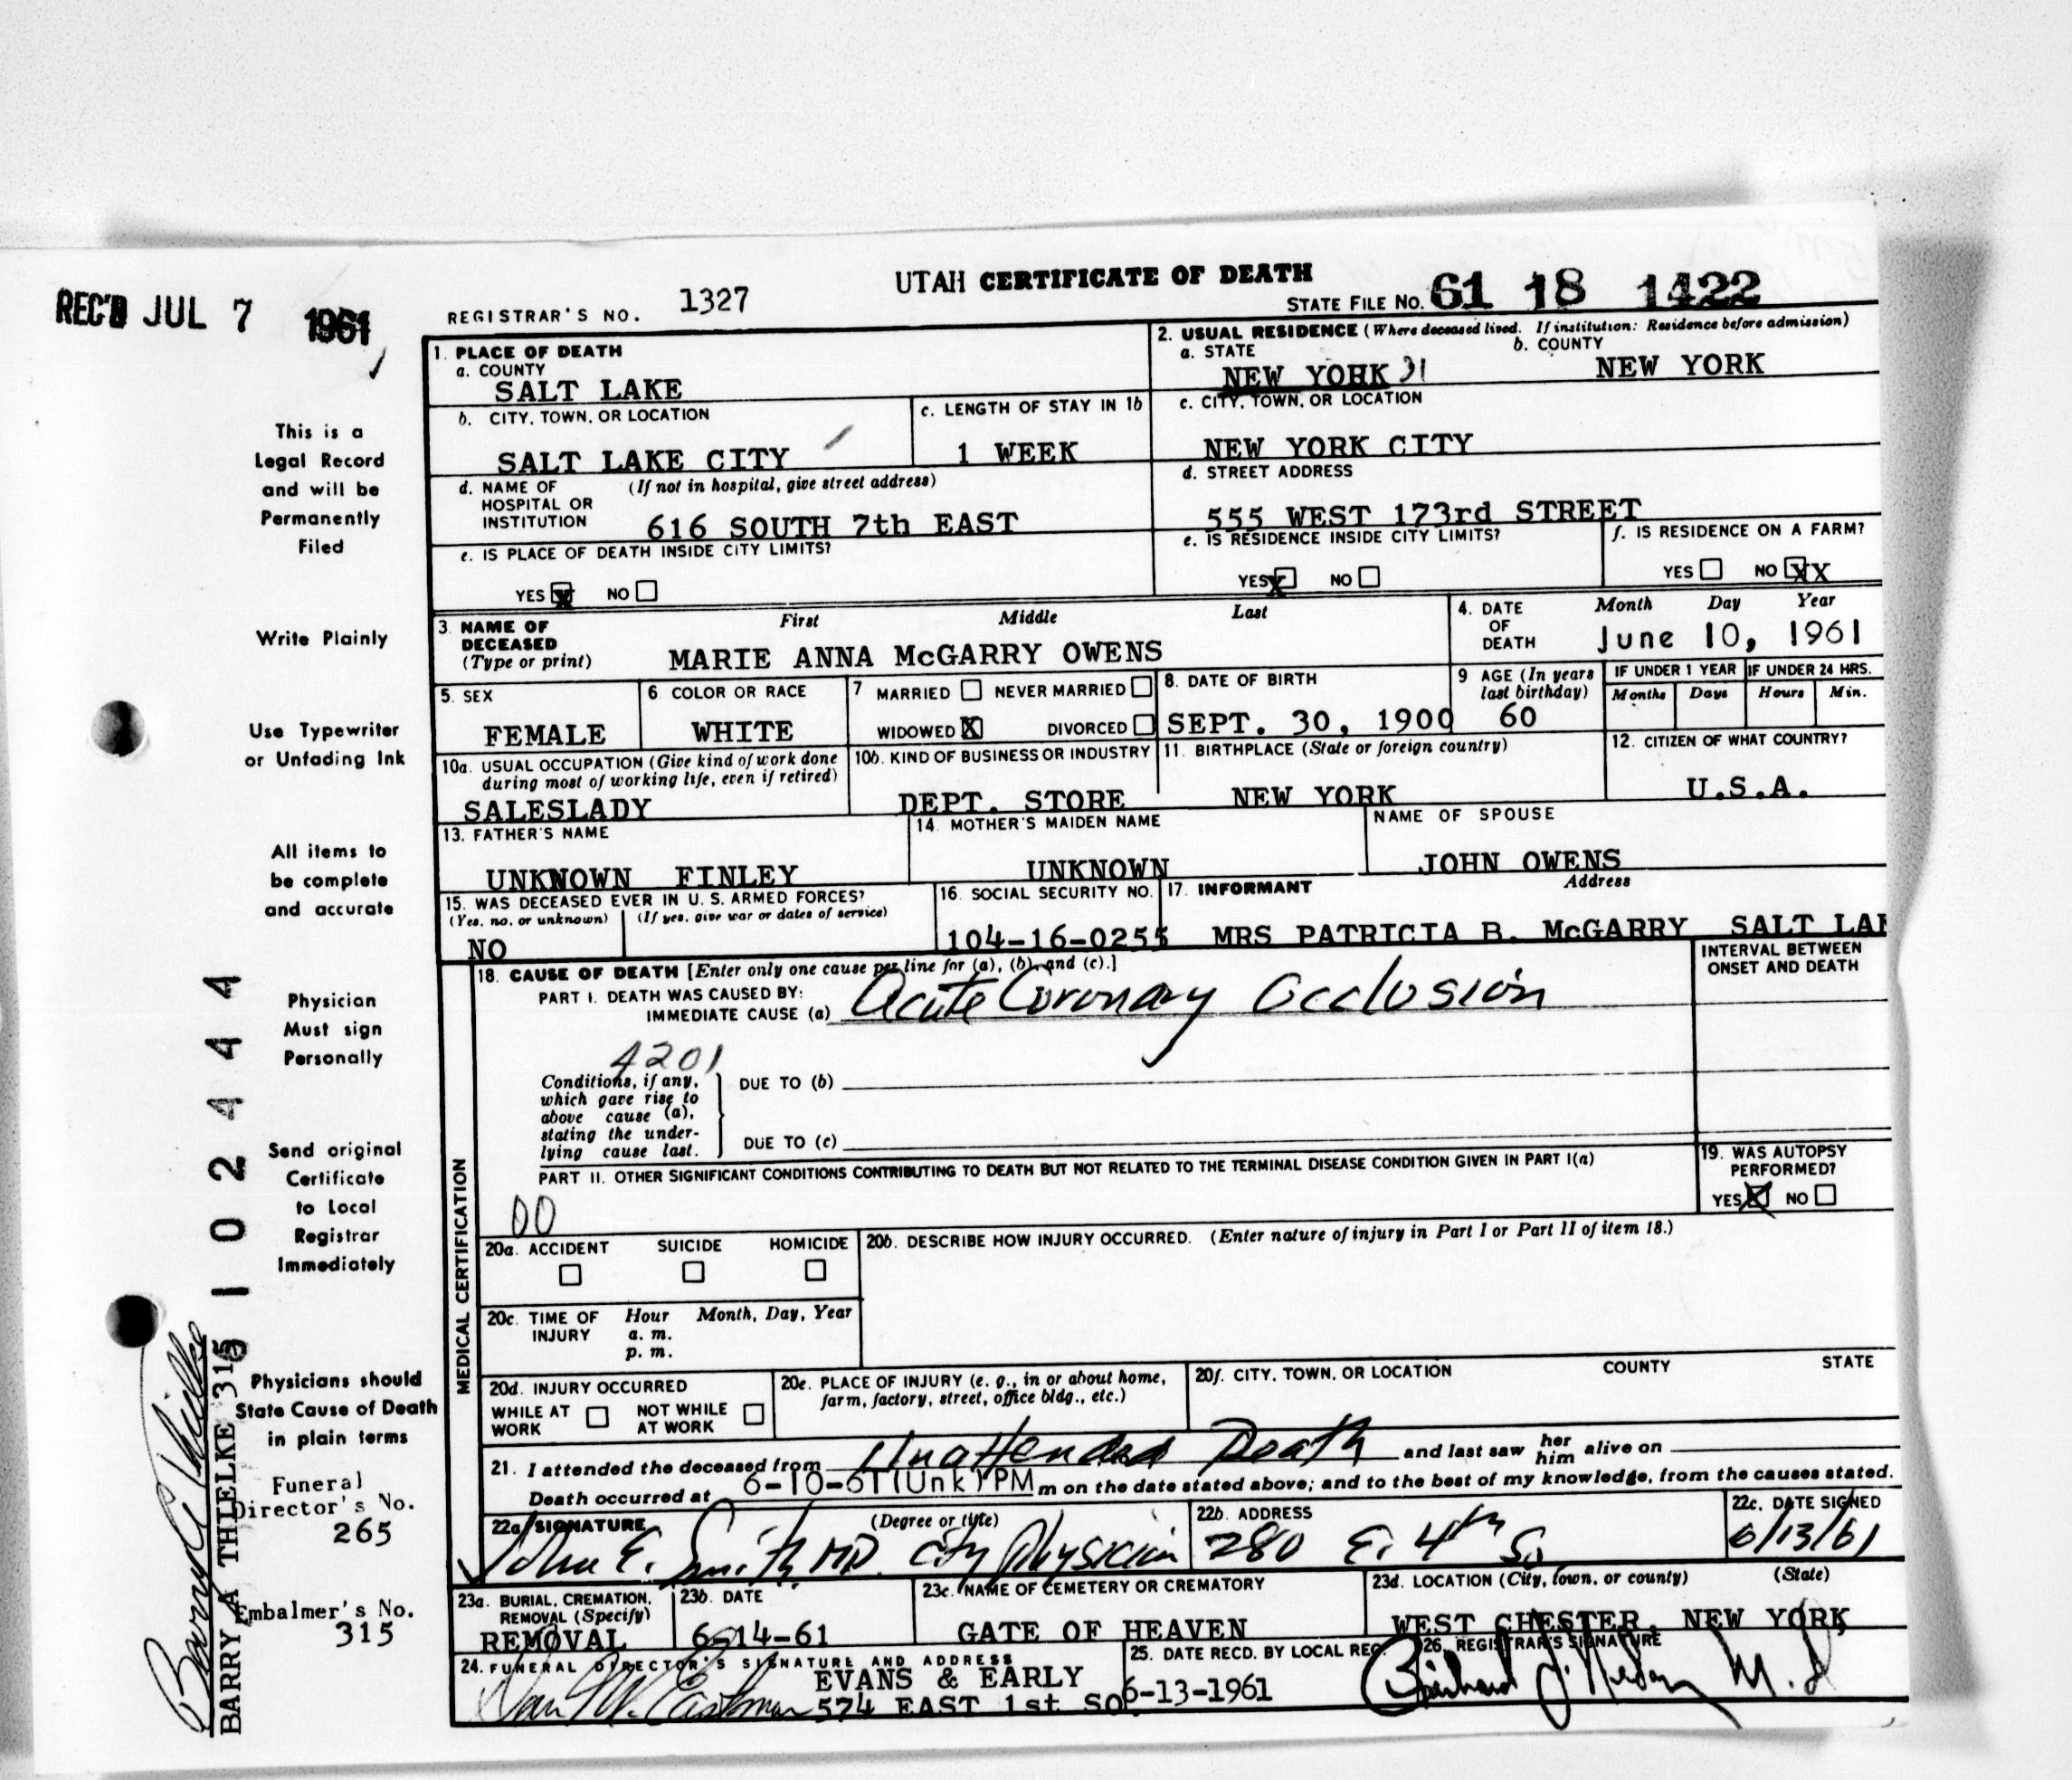 UTAH CERTIFICATE OF DEATH
REC'D JUL 7 1961
REGISTRAR'S NO. 1327
STATE FILE NO. 61 18 1422
1. PLACE OF DEATH
a. COUNTY
SALT LAKE
2. USUAL RESIDENCE (Where deceased lived. If institution: Residence before admission)
a. STATE
NEW YORK 31
b. COUNTY
NEW YORK
b. CITY, TOWN, OR LOCATION
SALT LAKE CITY
c. LENGTH OF STAY IN 1b
1 WEEK
c. CITY, TOWN, OR LOCATION
NEW YORK CITY
d. NAME OF HOSPITAL OR INSTITUTION
(If not in hospital, give street address)
616 SOUTH 7th EAST
d. STREET ADDRESS
555 WEST 173rd STREET
e. IS PLACE OF DEATH INSIDE CITY LIMITS?
YES X NO
e. IS RESIDENCE INSIDE CITY LIMITS?
YES X NO
f. IS RESIDENCE ON A FARM?
YES NO XX
3. NAME OF DECEASED
(Type or print)
First Middle Last
MARIE ANNA McGARRY OWENS
4. DATE OF DEATH
Month Day Year
June 10, 1961
5. SEX
FEMALE
6 COLOR OR RACE
WHITE
7 MARRIED NEVER MARRIED
WIDOWED X DIVORCED
8. DATE OF BIRTH
SEPT. 30, 1900
9 AGE (In years last birthday)
60
IF UNDER 1 YEAR
Months Days
IF UNDER 24 HRS.
Hours Min.
10a. USUAL OCCUPATION (Give kind of work done during most of working life, even if retired)
SALESLADY
10b. KIND OF BUSINESS OR INDUSTRY
DEPT. STORE
11. BIRTHPLACE (State or foreign country)
NEW YORK
12. CITIZEN OF WHAT COUNTRY?
U.S.A.
13. FATHER'S NAME
UNKNOWN FINLEY
14. MOTHER'S MAIDEN NAME
UNKNOWN
NAME OF SPOUSE
JOHN OWENS
15. WAS DECEASED EVER IN U. S. ARMED FORCES?
(Yes, no, or unknown) (If yes, give war or dates of service)
NO
16. SOCIAL SECURITY NO.
104-16-0255
17. INFORMANT Address
MRS PATRICIA B. McGARRY SALT LA
MEDICAL CERTIFICATION
18. CAUSE OF DEATH [Enter only one cause per line for (a), (b), and (c).]
PART I. DEATH WAS CAUSED BY:
IMMEDIATE CAUSE (a) Acute Coronary Occlusion
INTERVAL BETWEEN ONSET AND DEATH
4201
Conditions, if any, which gave rise to above cause (a), stating the underlying cause last.
DUE TO (b)
DUE TO (c)
PART II. OTHER SIGNIFICANT CONDITIONS CONTRIBUTING TO DEATH BUT NOT RELATED TO THE TERMINAL DISEASE CONDITION GIVEN IN PART I(a)
00
19. WAS AUTOPSY PERFORMED?
YES X NO
20a. ACCIDENT SUICIDE HOMICIDE
20b. DESCRIBE HOW INJURY OCCURRED. (Enter nature of injury in Part I or Part II of item 18.)
20c. TIME OF INJURY
Hour Month, Day, Year
a. m.
p. m.
20d. INJURY OCCURRED
WHILE AT WORK NOT WHILE AT WORK
20e. PLACE OF INJURY (e. g., in or about home, farm, factory, street, office bldg., etc.)
20f. CITY, TOWN, OR LOCATION COUNTY STATE
21. I attended the deceased from Unattended Death and last saw her him alive on
Death occurred at 6-10-61(Unk)PM m on the date stated above; and to the best of my knowledge, from the causes stated.
22a. SIGNATURE (Degree or title)
John E. Smith MD. City Physician
22b. ADDRESS
280 E. 4th So
22c. DATE SIGNED
6/13/61
23a. BURIAL, CREMATION, REMOVAL (Specify)
REMOVAL
23b. DATE
6-14-61
23c. NAME OF CEMETERY OR CREMATORY
GATE OF HEAVEN
23d. LOCATION (City, town, or county) (State)
WEST CHESTER, NEW YORK
24. FUNERAL DIRECTOR'S SIGNATURE AND ADDRESS
EVANS & EARLY
574 EAST 1st SO.
25. DATE RECD. BY LOCAL REG.
6-13-1961
26. REGISTRAR'S SIGNATURE
M.D
This is a
Legal Record
and will be
Permanently
Filed
Write Plainly
Use Typewriter
or Unfading Ink
All items to
be complete
and accurate
Physician
Must sign
Personally
Send original
Certificate
to Local
Registrar
Immediately
Physicians should
State Cause of Death
in plain terms
Funeral
Director's No.
265
Embalmer's No.
315
6102444
BARRY A THIELKE 315